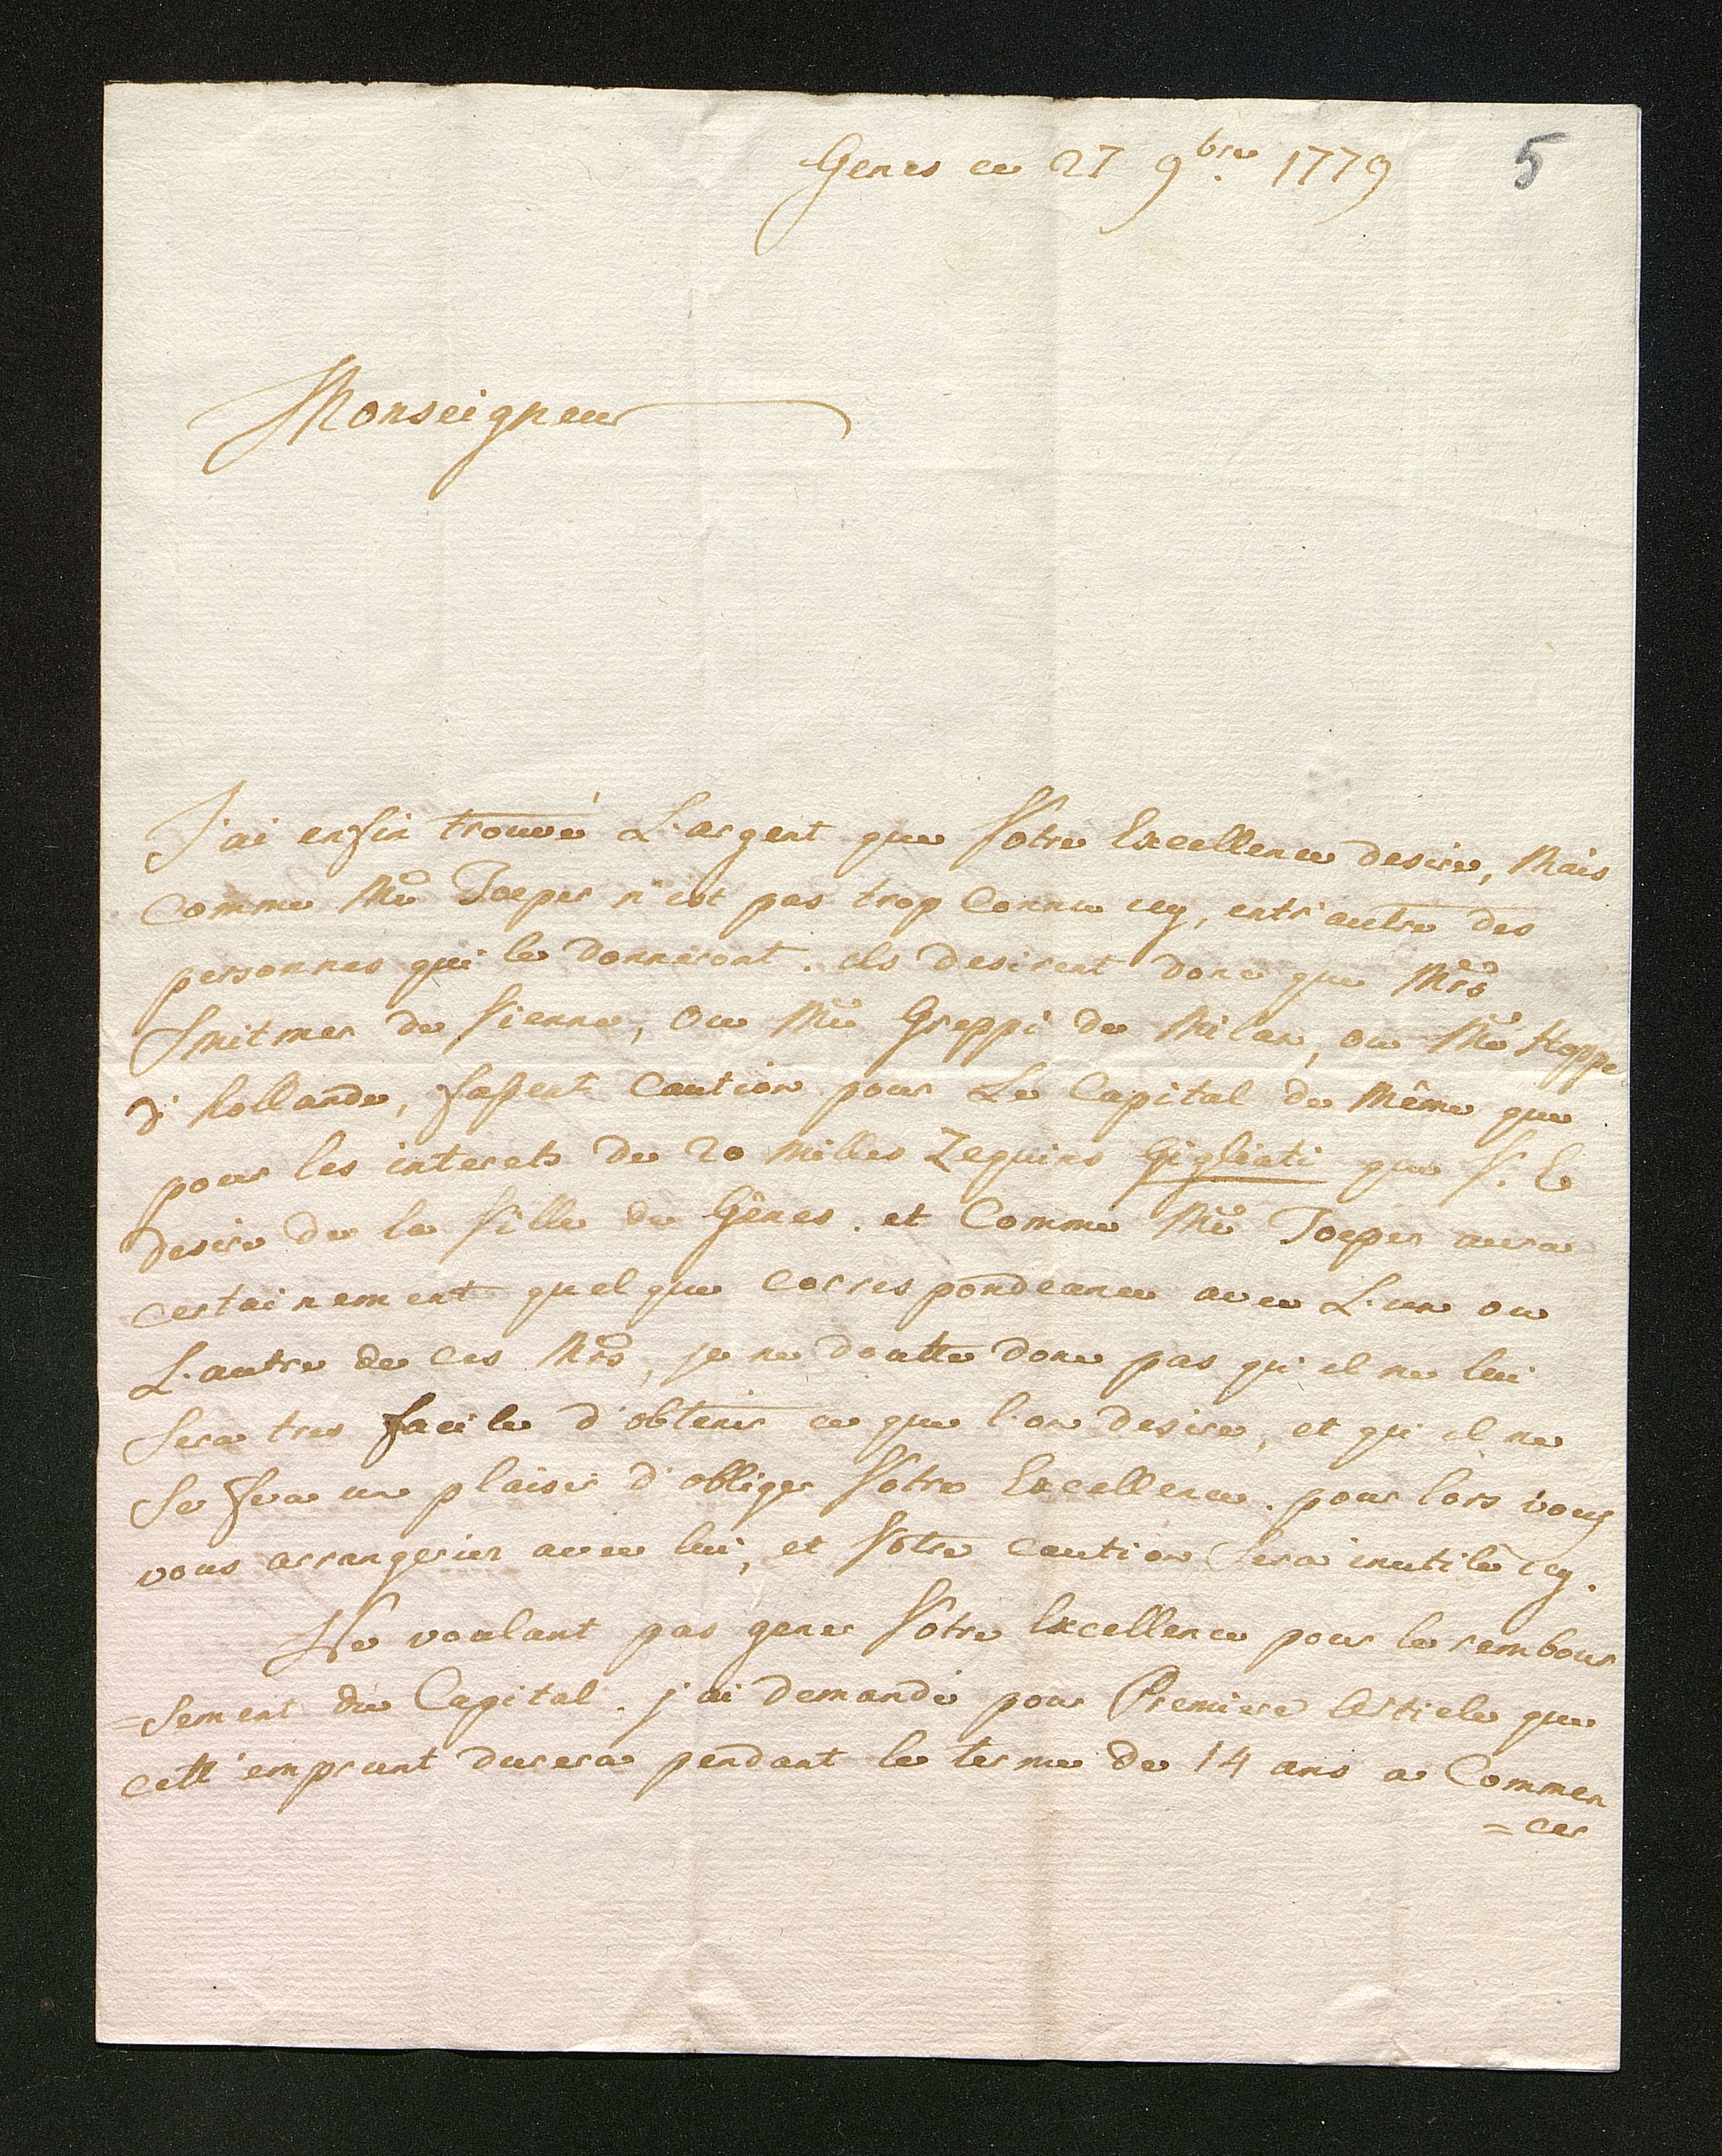 Genes ce 27 9bre. 1779
5
Monseigneur
J'ai enfin trouvé L'argent que Votre Excellence desire, Mais
Comme Mr Toeper n'est pas trop Connu icy, entr'autre des
personnes qui le donneront. ils desirent donc que Mrs
Smitmer de Vienne, ou Mr Greppi de Milan, ou Mr Hoppe
d'hollande, fassent Caution pour Le Capital de Même que
pour les interets de 20 Milles Zequins Gigliati que V. E
desire de la Ville de Gênes. et Comme Mr Toeper aura
certainement quelque correspondeance avec L'un ou
L'autre de ces Mrs, je ne doutte donc pas qu'il ne lui
Sera tres facile d'obtenir ce que l'on desire, et qu'il ne
Se fera un plaisir d'obliger Votre Excellence. pour lors vous
vous arrangerier avec lui, et Votre caution Sera inutile icy.
Ne voulant pas gener Votre Excellence pour le rembour
=Sement du Capital. j'ai demandé pour Premiere Article que
cett'emprunt durera pendant le terme de 14 ans a Commen
=cer